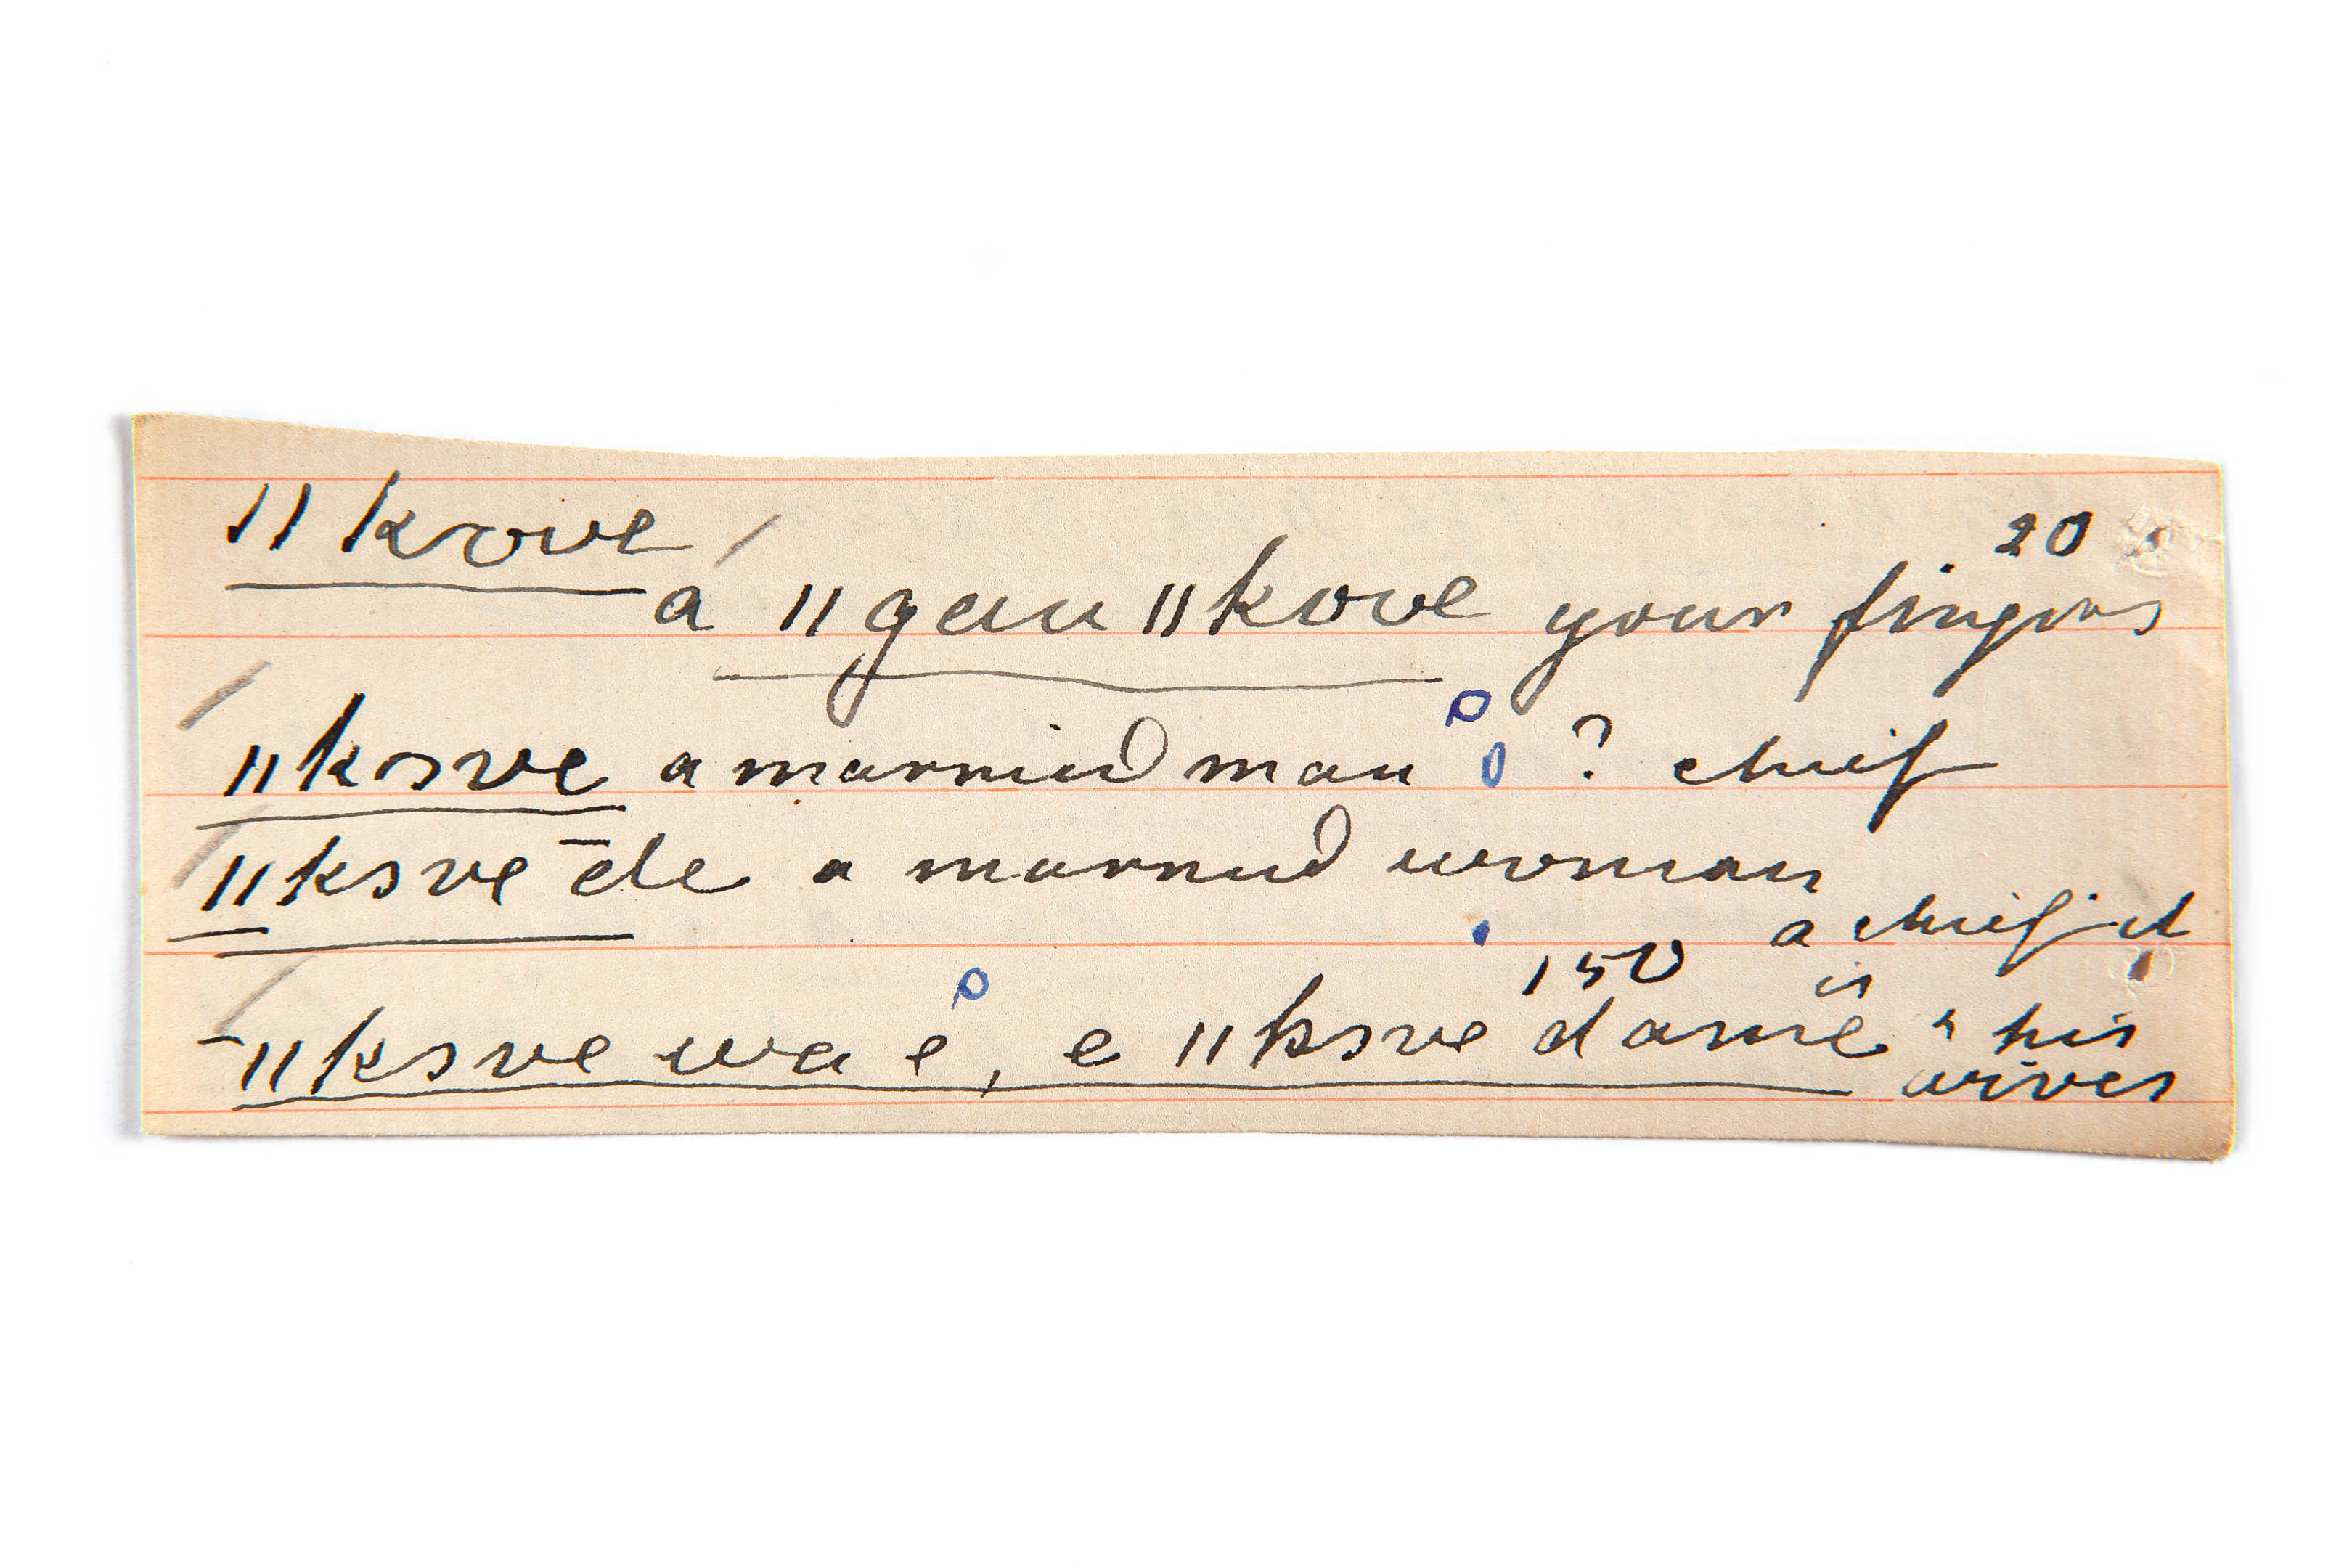 ǁkove
20
a ǁgauǁkove your fingers
ǁkove a married man ? chief
ǁkove ēde a married woman
a chief
150
ǁkove wa e, e ǁkove dome his
wives